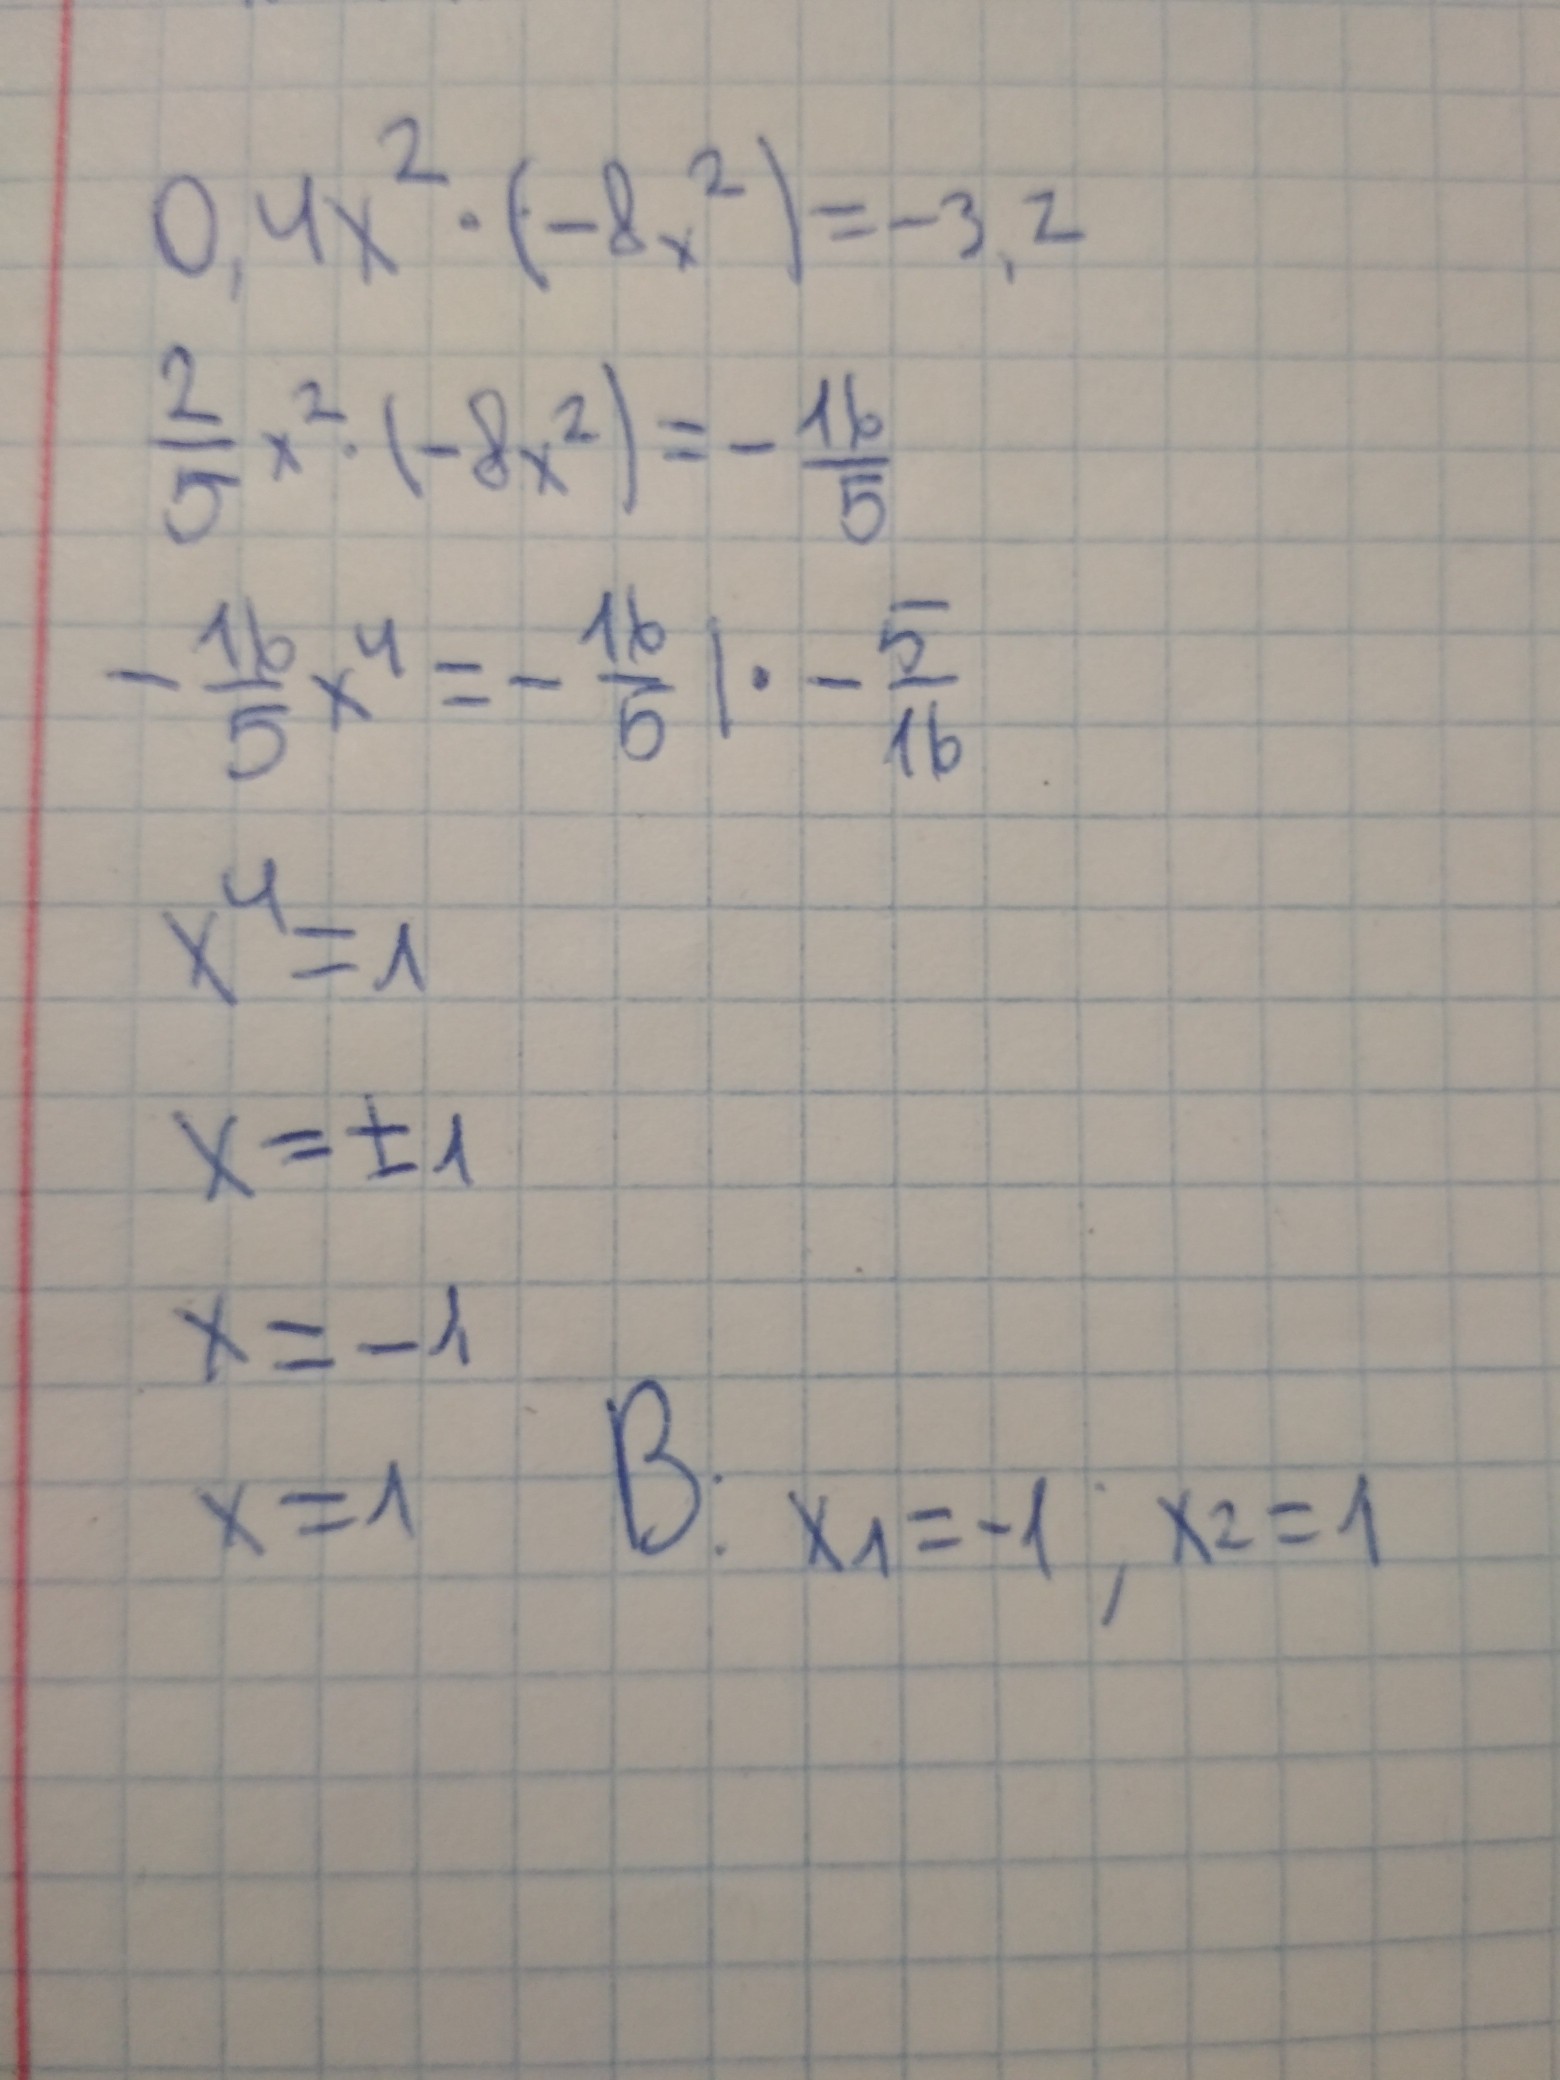 0,4x² · (-8x²) = -3,2
2/5 x² · (-8x²) = - 16/5
- 16/5 x⁴ = - 16/5 | · - 5/16
x⁴ = 1
x = ±1
x = -1
x = 1
В: x₁ = -1 ; x₂ = 1